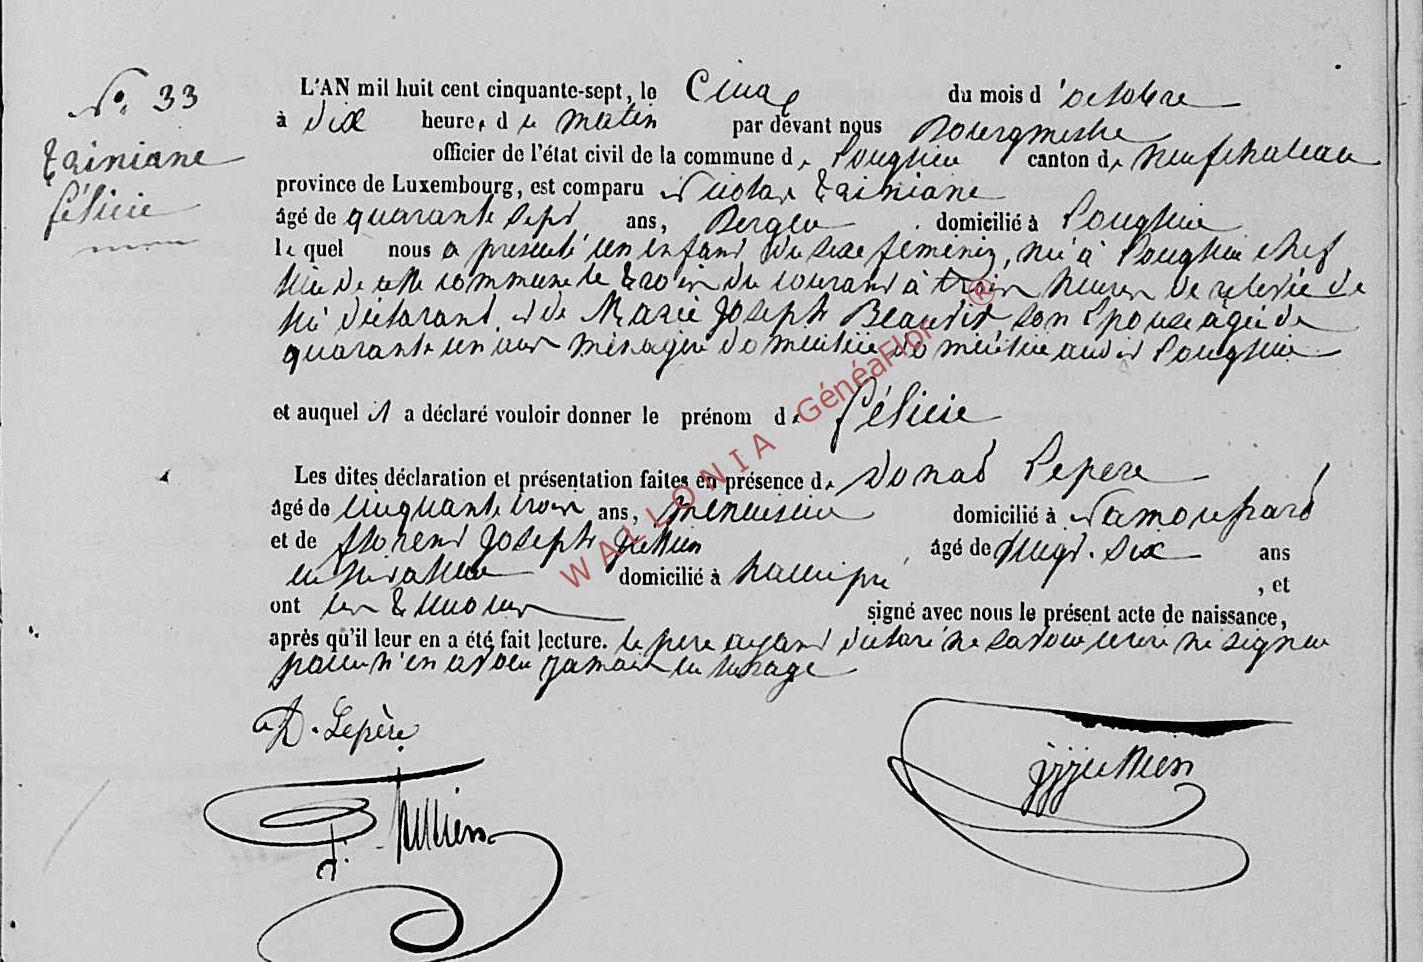 N°. 33
Tainiane
Félicie
L'AN mil huit cent cinquante-sept, le Cinq du mois d'octobre
à dix heures du matin par devant nous Bourgmestre
officier de l'état civil de la commune de Longlier canton de Neufchateau
province de Luxembourg, est comparu Nicolas Tainiane
âgé de quarante sept ans, Berger domicilié à Longlier
lequel nous a presenté un enfant du sexe féminin, né à Longlier chef
lieu de cette commune le trois du courant à trois heures de relevée de
lui déclarant, et de Marie Joseph Beaudit, son Epouse agée de
quarante un ans ménagère domiciliée domiciliée audit Longlier
et auquel il a déclaré vouloir donner le prénom de Félicie
Les dites déclaration et présentation faites en présence de Donat Lepere
âgé de cinquante trois ans, menuisier domicilié à Namoussart
et de florent Joseph âgé de vingt-six ans
cultivateur domicilié à , et
ont les témoins signé avec nous le présent acte de naissance,
après qu'il leur en a été fait lecture. le pere ayant déclaré ne savoir ecrire ni signer
pour n'en avoir jamais eu l'usage
D. Lepère
WALLONIA GénéaFlor ®